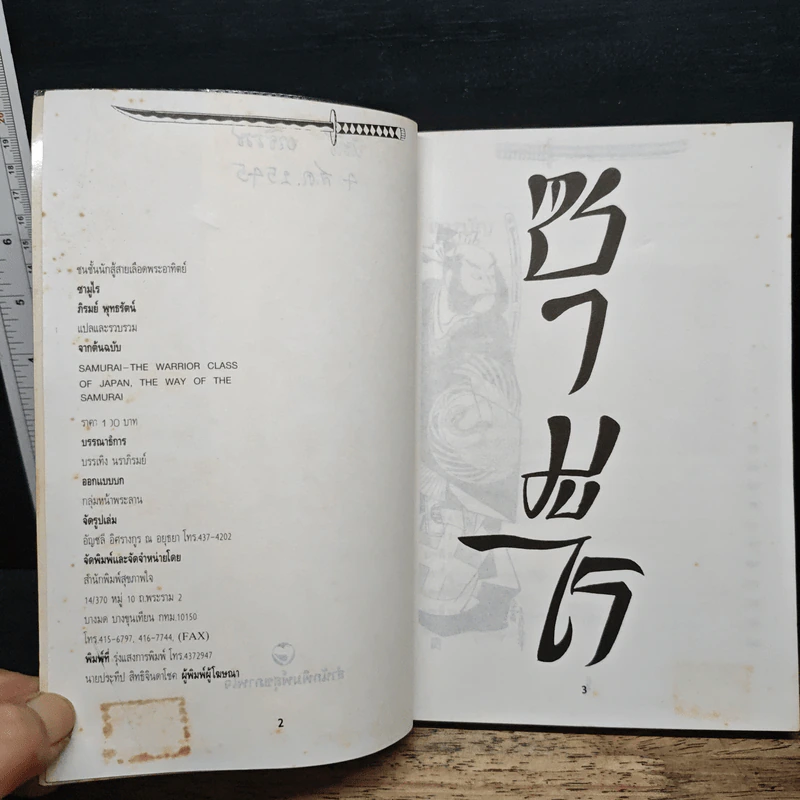 ชนชั้นนักสู้สายเลือดพระอาทิตย์
ซามูไร
ภิรมย์ พุทธรัตน์
แปลและรวบรวม
จากต้นฉบับ
SAMURAI–THE WARRIOR CLASS
OF JAPAN, THE WAY OF THE
SAMURAI
ราคา บาท
บรรณาธิการ
บรรเทิง นราภิรมย์
ออกแบบปก
กลุ่มหน้าพระลาน
จัดรูปเล่ม
อัญชลี อิศรางกูร ณ อยุธยา โทร.437-4202
จัดพิมพ์และจัดจำหน่ายโดย
สำนักพิมพ์สุขภาพใจ
14/370 หมู่ 10 ถ.พระราม 2
บางมด บางขุนเทียน กทม.10150
โทร.415-6797, 416-7744, (FAX)
พิมพ์ที่ รุ่งแสงการพิมพ์ โทร.4372947
นายประทีป สิทธิจินดาโชค ผู้พิมพ์ผู้โฆษณา
2
ซามูไร
3